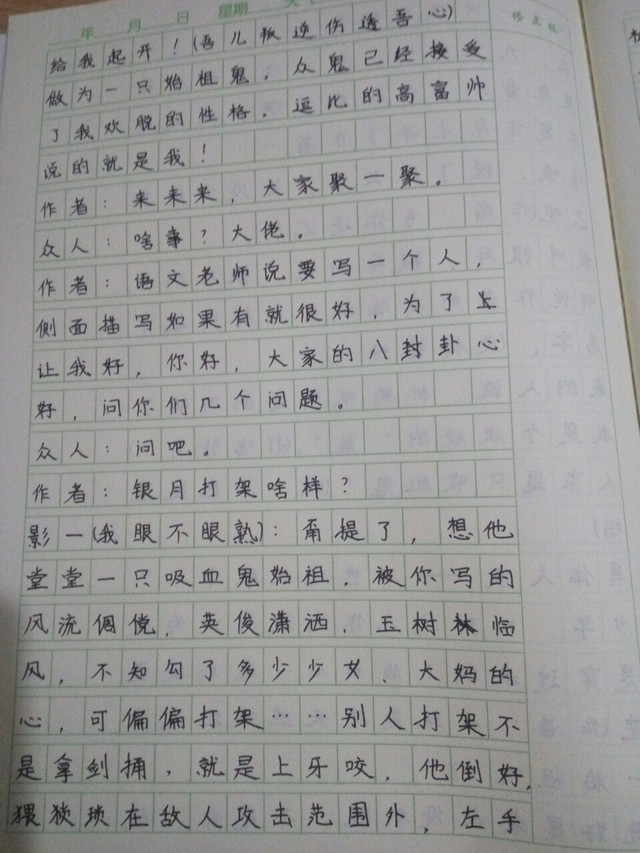 年 月 日 星期
修正栏
给我起开！(吾儿叛逆伤透吾心)
做为一只始祖鬼，众鬼已经接受
了我欢脱的性格，逗比的高富帅
说的就是我！
作者：来来来，大家聚一聚。
众人：啥事？大佬。
作者：语文老师说要写一个人，
侧面描写如果有就很好，为了
让我好，你好，大家的八封卦心
好，问你们几个问题。
众人：问吧。
作者：银月打架啥样？
影一(我眼不眼熟)：甭提了，想他
堂堂一只吸血鬼始祖，被你写的
风流倜傥，英俊潇洒，玉树林临
风，不知勾了多少少女、大妈的
心，可偏偏打架……别人打架不
是拿剑捅，就是上牙咬，他倒好，
猥琐在敌人攻击范围外，左手